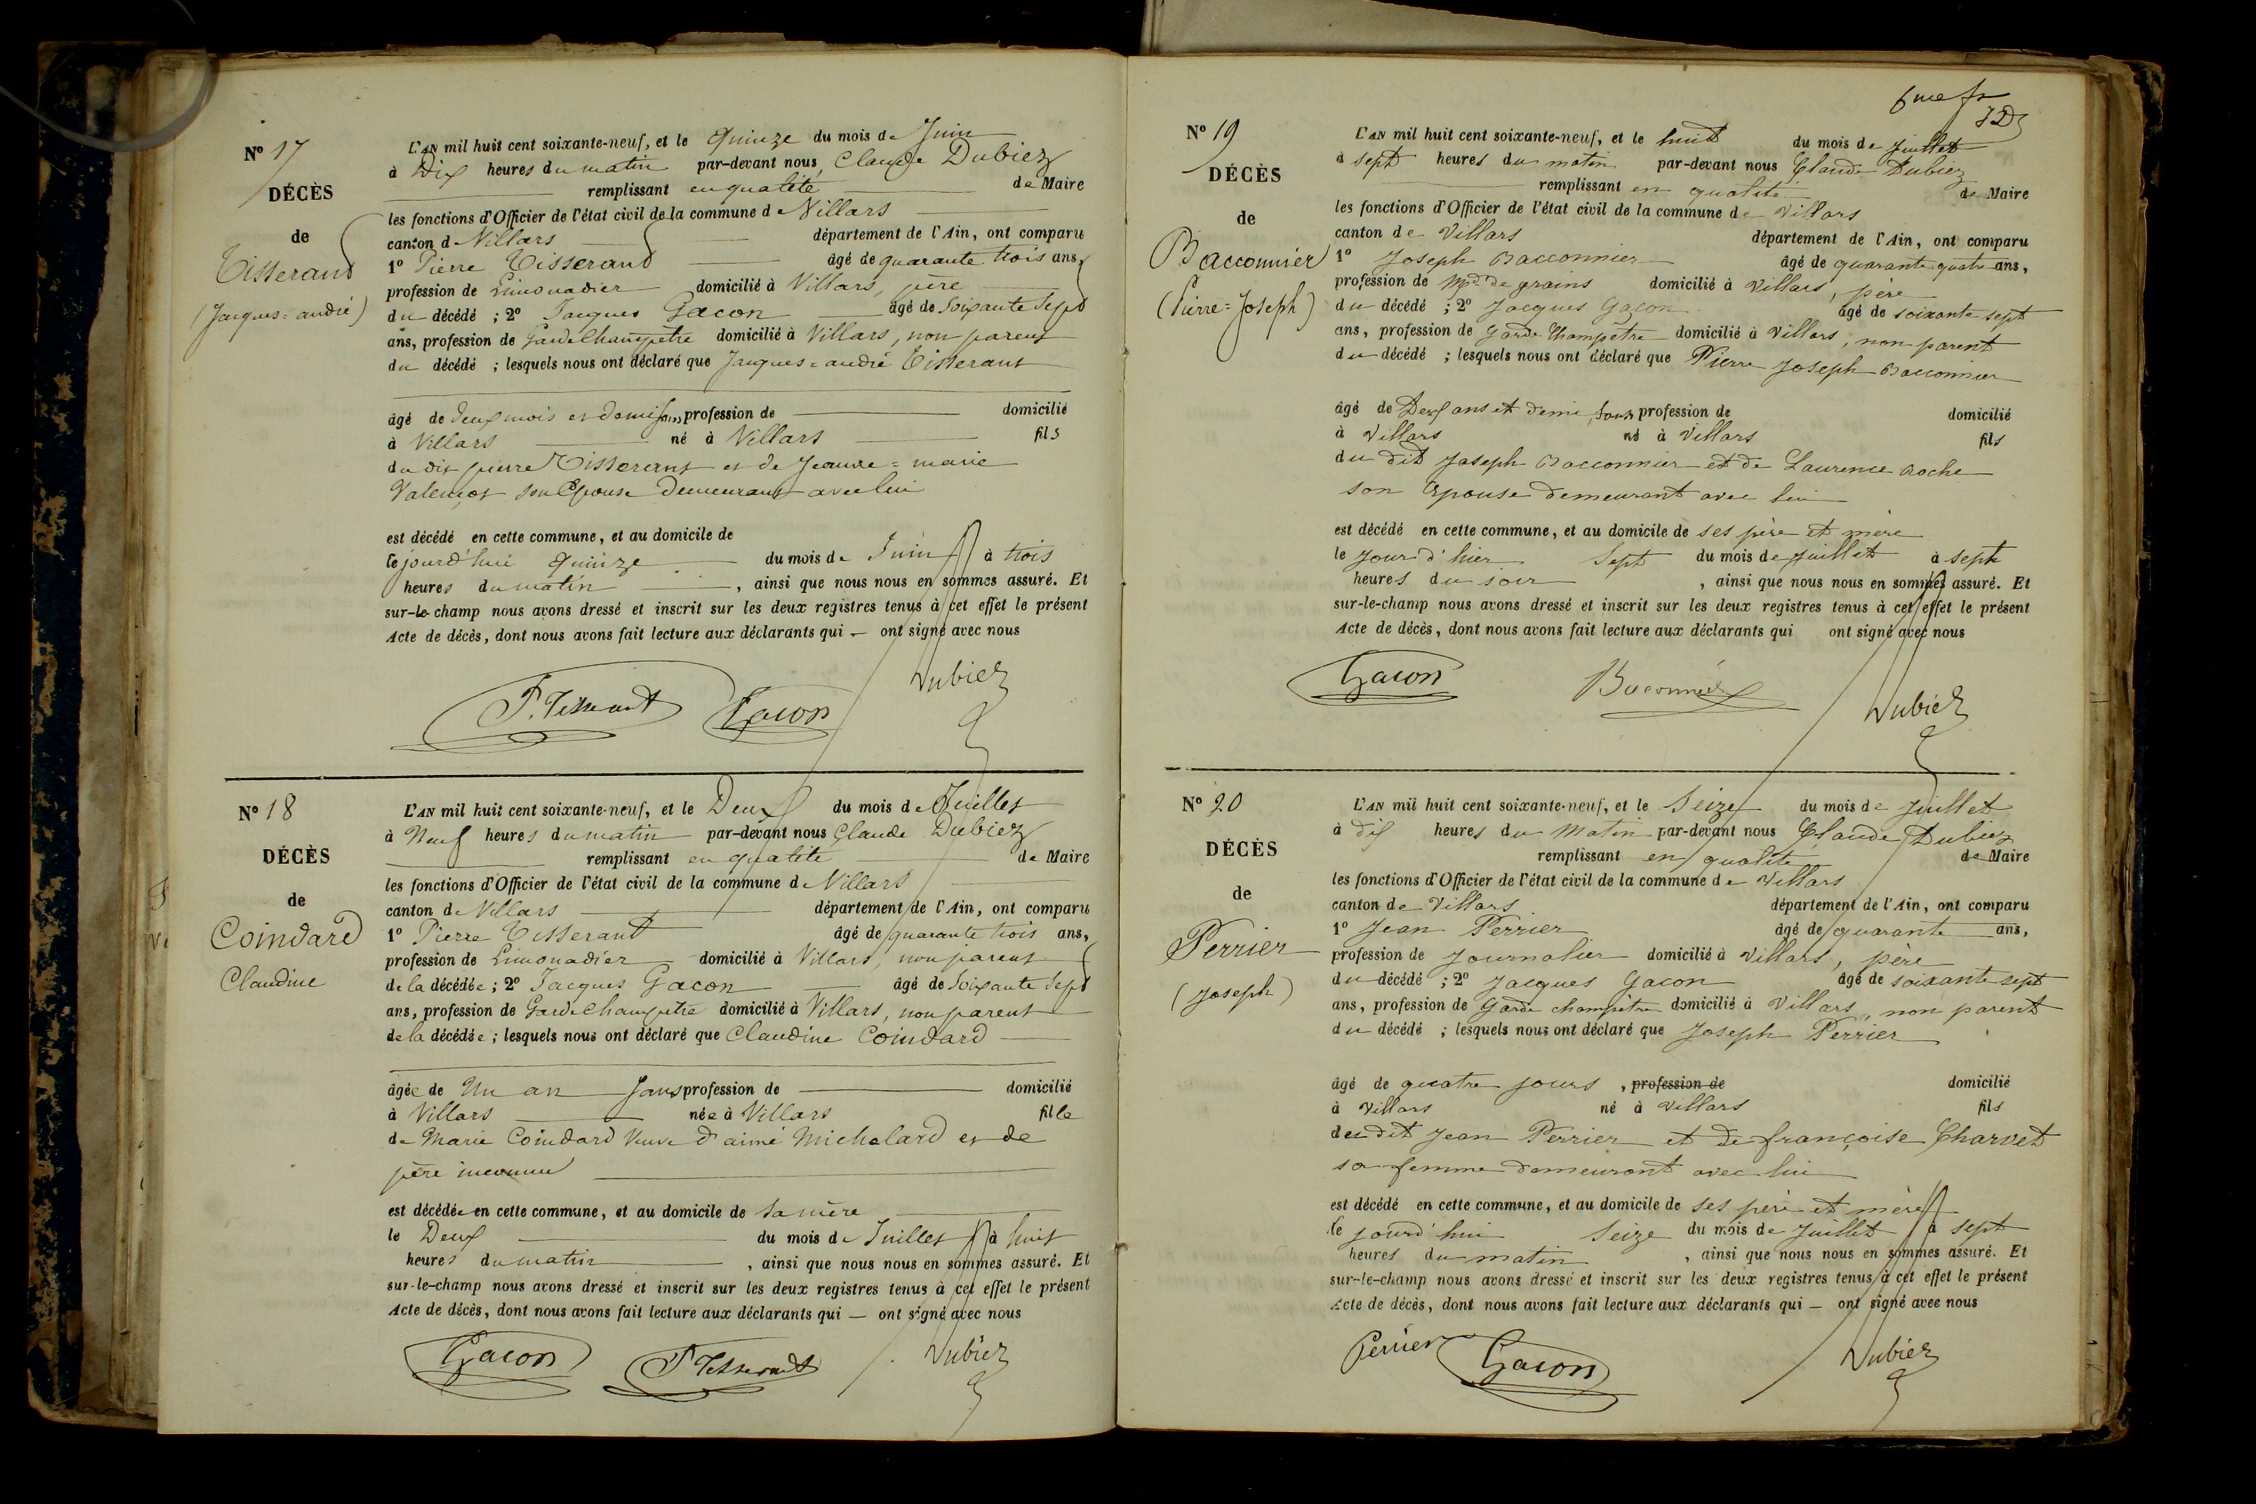 N° 17
DÉCÈS
de
Tisserand
(Jacques=andré)
L'AN mil huit cent soixante-neuf, et le Quinze du mois de Juin
à Dix heures du matin par-devant nous Claude Dubiez
remplissant en qualité de Maire
les fonctions d'Officier de l'état civil de la commune de Villars
canton de Villars département de l'Ain, ont comparu
1° Pierre Tisserand âgé de quarante trois ans,
profession de Limonadier domicilié à Villars, père
du décédé ; 2° Jacques Gacon âgé de Soixante Sept
ans, profession de Garde Champetre domicilié à Villars, non parent
du décédé ; lesquels nous ont déclaré que Jacques=andré Tisserant
âgé de Deux mois et demi, sans profession de domicilié
à Villars né à Villars fils
du dit pierre Tisserant et de Jeanne=marie
Valençot son Epouse demeurant avec lui
est décédé en cette commune, et au domicile de
le jourd'hui Quinze du mois de Juin à trois
heures du matin , ainsi que nous nous en sommes assuré. Et
sur-le-champ nous avons dressé et inscrit sur les deux registres tenus à cet effet le présent
Acte de décès, dont nous avons fait lecture aux déclarants qui — ont signé avec nous
P. Tisserant Gacon Dubiez
N° 18
DÉCÈS
de
Coindard
Claudine
L'AN mil huit cent soixante-neuf, et le Deux du mois de Juillet
à Neuf heures du matin par-devant nous Claude Dubiez
remplissant en qualité de Maire
les fonctions d'Officier de l'état civil de la commune de Villars
canton de Villars département de l'Ain, ont comparu
1° Pierre Tisserant âgé de quarante trois ans,
profession de Limonadier domicilié à Villars, non parent
de la décédée ; 2° Jacques Gacon âgé de Soixante Sept
ans, profession de Garde Champetre domicilié à Villars, non parent
de la décédée ; lesquels nous ont déclaré que Claudine Coindard
âgée de Un an Sans profession de domicilié
à Villars née à Villars fille
de Marie Coindard Veuve d'aimé Michelard et de
père inconnu
est décédée en cette commune, et au domicile de Sa mère
le Deux du mois de Juillet à huit
heures du matin , ainsi que nous nous en sommes assuré. Et
sur-le-champ nous avons dressé et inscrit sur les deux registres tenus à cet effet le présent
Acte de décès, dont nous avons fait lecture aux déclarants qui — ont signé avec nous
Gacon P Tisserant Dubiez
6me fr
N° 19
DÉCÈS
de
Bacconnier
(Pierre=Joseph)
L'AN mil huit cent soixante-neuf, et le huit du mois de Juillet
à sept heures du matin par-devant nous Claude Dubiez
remplissant en qualité de Maire
les fonctions d'Officier de l'état civil de la commune de Villars
canton de Villars département de l'Ain, ont comparu
1° Joseph Bacconnier âgé de quarante quatre ans,
profession de Md de grains domicilié à Villars, père
du décédé ; 2° Jacques Gacon âgé de soixante sept
ans, profession de Garde Champêtre domicilié à Villars, non parent
du décédé ; lesquels nous ont déclaré que Pierre Joseph Bacconnier
âgé de Deux ans et demi, sans profession de domicilié
à Villars né à Villars fils
du dit Joseph Bacconnier et de Laurence Roche
son Epouse demeurant avec lui
est décédé en cette commune, et au domicile de ses père et mère
le jour d'hier Sept du mois de Juillet à sept
heures du soir , ainsi que nous nous en sommes assuré. Et
sur-le-champ nous avons dressé et inscrit sur les deux registres tenus à cet effet le présent
Acte de décès, dont nous avons fait lecture aux déclarants qui ont signé avec nous
Gacon Baconnier Dubiez
N° 20
DÉCÈS
de
Perrier
(Joseph)
L'AN mil huit cent soixante-neuf, et le Seize du mois de Juillet
à dix heures du Matin par-devant nous Claude Dubiez
remplissant en qualité de Maire
les fonctions d'Officier de l'état civil de la commune de Villars
canton de Villars département de l'Ain, ont comparu
1° Jean Perrier âgé de quarante ans,
profession de Journalier domicilié à Villars, père
du décédé ; 2° Jacques Gacon âgé de soixante sept
ans, profession de Garde champêtre domicilié à Villars, non parent
du décédé ; lesquels nous ont déclaré que Joseph Perrier
âgé de quatre jours , profession de domicilié
à Villars né à Villars fils
du dit Jean Perrier et de françoise Charvet
sa femme demeurant avec lui
est décédé en cette commune, et au domicile de ses père et mère
le jourd'hui Seize du mois de Juillet à sept
heures du matin , ainsi que nous nous en sommes assuré. Et
sur-le-champ nous avons dressé et inscrit sur les deux registres tenus à cet effet le présent
Acte de décès, dont nous avons fait lecture aux déclarants qui — ont signé avec nous
Perrier Gacon Dubiez